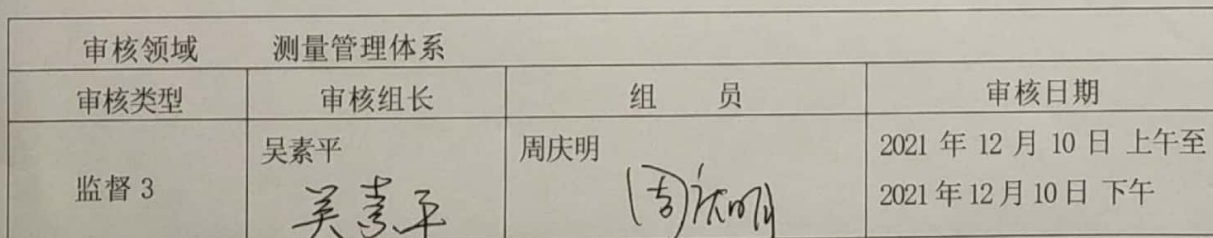 审核领域 测量管理体系
审核类型 审核组长 组 员 审核日期
监督 3
吴素平
吴素平
周庆明
周庆明
2021 年 12 月 10 日 上午至
2021 年 12 月 10 日 下午